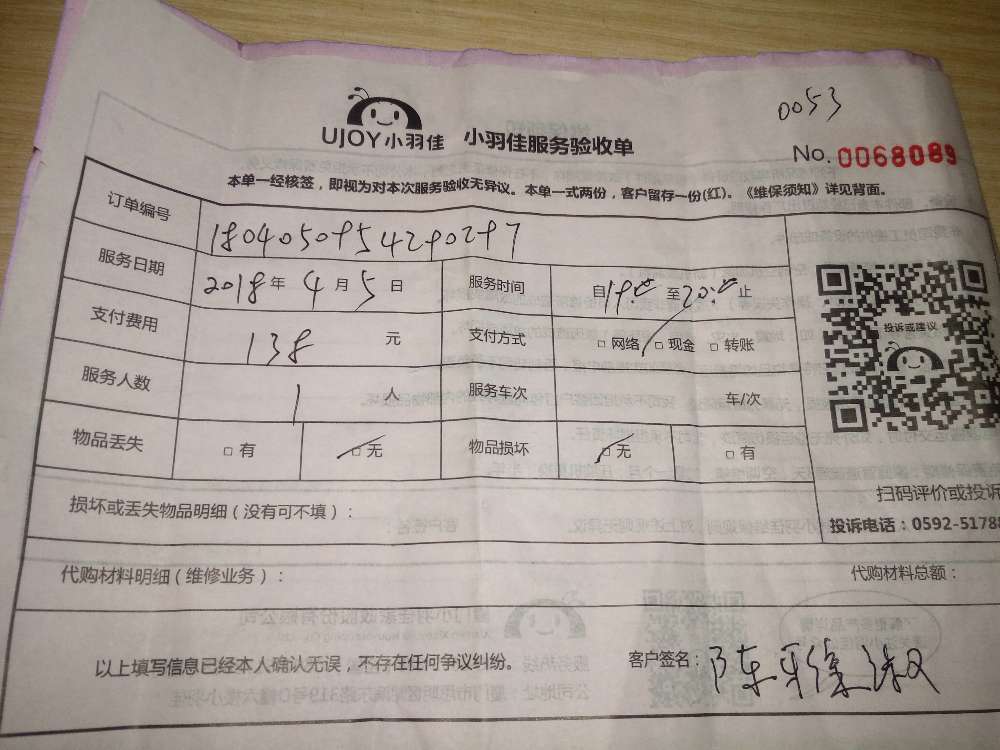 0053
UJOY小羽佳 小羽佳服务验收单
No. 0068089
本单一经核签，即视为对本次服务验收无异议。本单一式两份，客户留存一份(红)。《维保须知》详见背面。
订单编号
服务日期 2018年4月5日 服务时间 自19:00至20:00止
支付费用 138元 支付方式 □网络 □现金 □转账
服务人数 1人 服务车次 车/次
物品丢失 □有 □无 物品损坏 □无 □有
投诉或建议
扫码评价或投诉
投诉电话：0592-5178
损坏或丢失物品明细（没有可不填）：
代购材料明细（维修业务）： 代购材料总额：
以上填写信息已经本人确认无误，不存在任何争议纠纷。 客户签名：陈